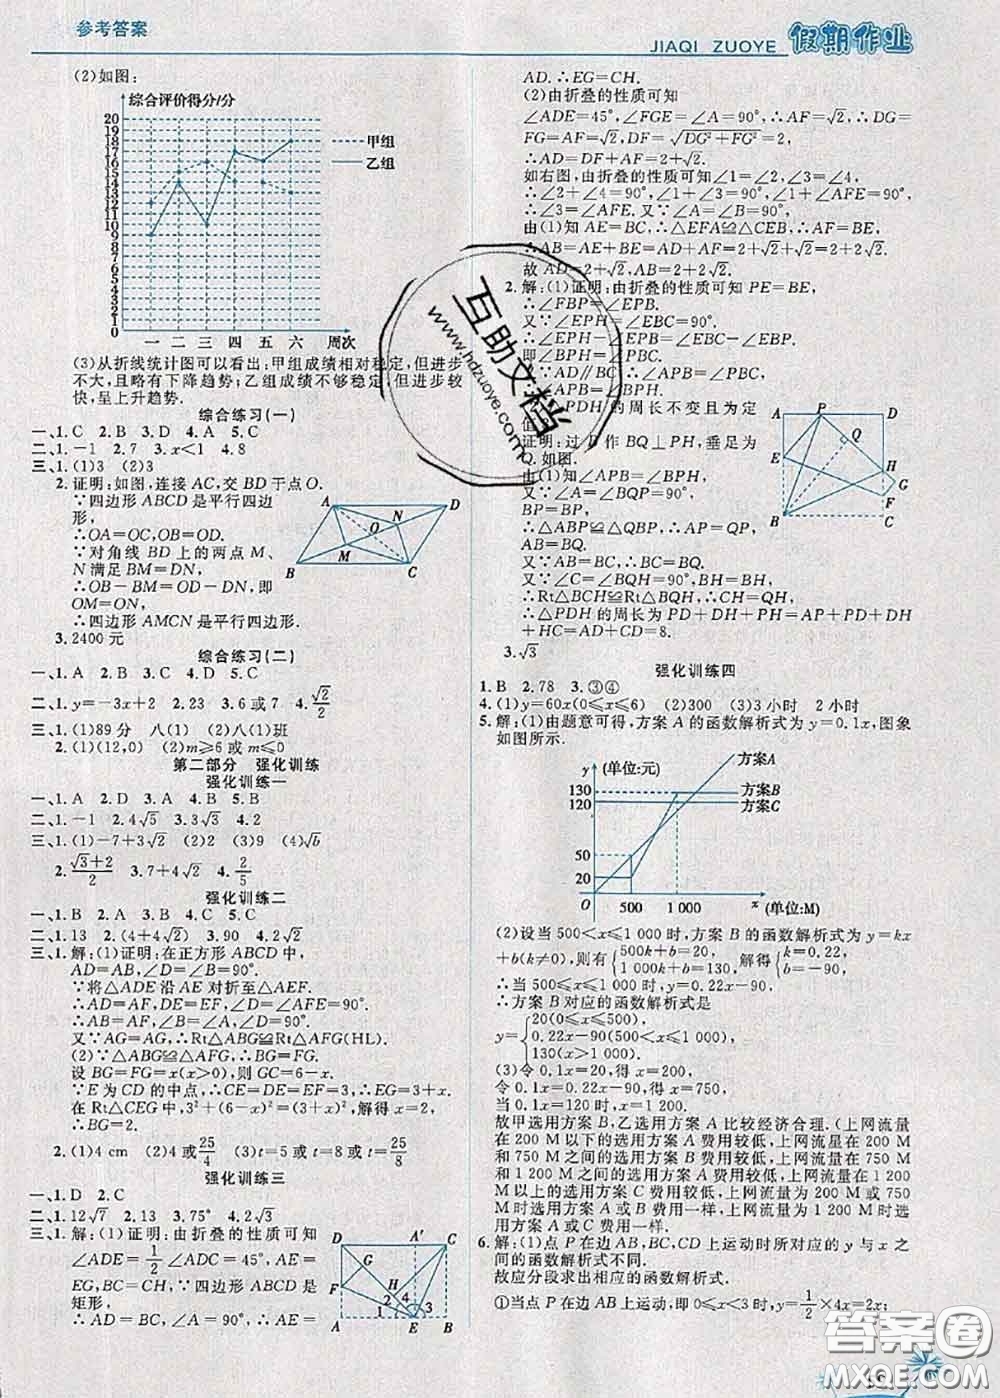 参考答案
JIAQI ZUOYE 假期作业
(2)如图:
综合评价得分/分
20
19
18
17
16
15
14
13
12
11
10
9
8
7
6
5
4
3
2
1
0
甲组
乙组
一 二 三 四 五 六 周次
(3)从折线统计图可以看出:甲组成绩相对稳定,但进步
不大,且略有下降趋势;乙组成绩不够稳定,但进步较
快,呈上升趋势.
综合练习(一)
一、1.C 2.B 3.D 4.A 5.C
二、1.-1 2.7 3.x<1 4.8
三、1.(1)3 (2)3
2.证明:如图,连接AC,交BD于点O.
∵四边形ABCD是平行四边
形,
∴OA=OC,OB=OD.
∵对角线BD上的两点M、
N满足BM=DN,
∴OB-BM=OD-DN,即
OM=ON,
∴四边形AMCN是平行四边形.
A D N O M B C
3.2400元
综合练习(二)
一、1.A 2.B 3.C 4.D 5.C
二、1.y=-3x+2 2.23 3.6或7 4.√2/2
三、1.(1)89分 八(1) (2)八(1)班
2.(1)(12,0) (2)m≥6或m≤0
第二部分 强化训练
强化训练一
一、1.A 2.D 3.A 4.A 5.B
二、1.-1 2.4√5 3.3√3 4.2
三、1.(1)-7+3√2 (2)2 (3)9 (4)√b
2.(√3+2)/2 3.7+4√2 4.2/5
强化训练二
一、1.B 2.A 3.C 4.C 5.C
二、1.13 2.(4+4√2) 3.90 4.2√3
三、1.解:(1)证明:在正方形ABCD中,
AD=AB,∠D=∠B=90°.
∵将△ADE沿AE对折至△AEF.
∴AD=AF,DE=EF,∠D=∠AFE=90°.
∴AB=AF,∠B=∠A,∠D=90°.
又∵AG=AG,∴Rt△ABG≌Rt△AFG(HL).
(2)∵△ABG≌△AFG,∴BG=FG.
设BG=FG=x(x>0),则GC=6-x.
∵E为CD的中点,∴CE=DE=EF=3,∴EG=3+x.
在Rt△CEG中,3²+(6-x)²=(3+x)²,解得x=2.
∴BG=2.
2.(1)4 cm (2)t=25/4 (3)t=5或t=25/8
强化训练三
一、1.D 2.C
二、1.12√7 2.13 3.75° 4.2√3
三、1.解:(1)证明:由折叠的性质可知
∠ADE=1/2∠ADC=45°,AE=
EG,BC=CH=,∵四边形ABCD是
矩形,
∴△ADE为等腰三角形,∴AE=
D A' C G F H 2 4 1 3 A E B
AD.∴EG=CH.
(2)由折叠的性质可知
∠ADE=45°,∠FGE=∠A=90°,∴AF=√2,∴DG=
FG=AF=√2,DF=√(DG²+FG²)=2,
∴AD=DF+AF=2+√2.
如右图,由折叠的性质可知∠1=∠2,∠3=∠4,
∴∠2+∠4=90°,∠1+∠3=90°,∠1+∠AFE=90°.
∴∠3=∠AFE.又∵∠A=∠B=90°,
由(1)知AE=BC,∴△EFA≌△CEB,∴AF=BE,
∴AB=AE+BE=AD+AF=2+√2+√2=2+2√2.
故AD=2+√2,AB=2+2√2.
2.解:(1)证明:由折叠的性质可知PE=BE,
∴∠FBP=∠EPB.
又∵∠EPH=∠EBC=90°,
∴∠EPH-∠EPB=∠EBC-∠EBP.
即∠BPH=∠PBC.
又∵AD∥BC,∴∠APB=∠PBC.
PDH的周长不变且为定
证明:过B作BQ⊥PH,垂足为
Q.如图.
由(1)知∠APB=∠BPH,
又∵∠A=∠BQP=90°,
BP=BP,
∴△ABP≌△QBP,∴AP=QP,
AB=BQ.
又∵AB=BC,∴BC=BQ.
又∵∠C=∠BQH=90°,BH=BH,
∴Rt△BCH≌Rt△BQH,∴CH=QH,
∴△PDH的周长为PD+DH+PH=AP+PD+DH
+HC=AD+CD=8.
A P D Q E H G F B C
3.√3
强化训练四
1.B 2.78 3.③④
4.(1)y=60x(0≤x≤6) (2)300 (3)3小时 2小时
5.解:(1)由题意可得,方案A的函数解析式为y=0.1x,图象
如图所示.
y (单位:元)
方案A
方案B
方案C
130
120
50
20
O 500 1 000 x (单位:M)
(2)设当500<x≤1 000时,方案B的函数解析式为y=kx
+b(k≠0),则有{500k+b=20, 1 000k+b=130, 解得{k=0.22, b=-90.
∴当500<x≤1 000时,y=0.22x-90.
∴方案B对应的函数解析式是
y={20(0≤x≤500),
0.22x-90(500<x≤1 000),
130(x>1 000).
(3)令0.1x=20,得x=200,
令0.1x=0.22x-90,得x=750,
当0.1x=120时,x=1 200.
故甲选用方案B,乙选用方案A比较经济合理.(上网流量
在200 M以下的选用方案A费用较低,上网流量在200 M
和750 M之间的选用方案B费用较低,上网流量在750 M
和1 200 M之间的选用方案A费用较低,上网流量在1 200
M以上的选用方案C费用较低,上网流量为200 M或750
M时选用方案A或B费用一样,上网流量为1 200 M时选用
方案A或C费用一样.
6.解:(1)点P在边AB,BC,CD上运动时所对应的y与x之
间的函数解析式不同.
故应分段求出相应的函数解析式.
①当点P在边AB上运动,即0≤x<3时,y=1/2×4x=2x;
互助文档
www.hdzuoye.com
答案圈
MXQE.COM